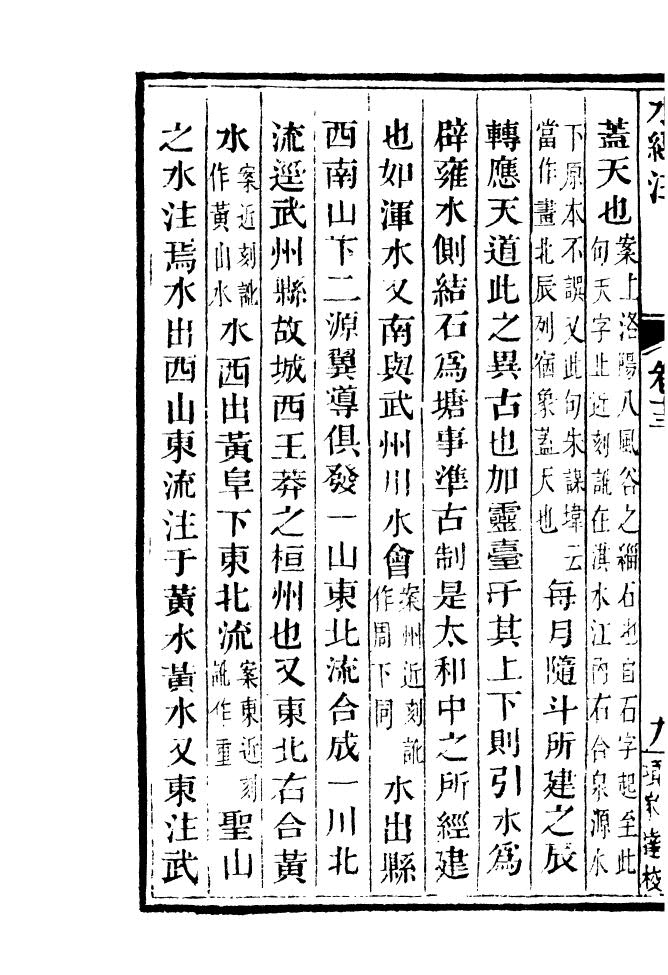 水經注 卷十三 九
蓋天也案上洛陽八風谷之緇石也自石字起至此句天字止近刻訛在濕水江內右合泉源水
下原本不誤又此句朱謀㙔云當作畫北辰列宿象蓋天也每月隨斗所建之辰
轉應天道此之異古也加靈臺于其上下則引水爲
辟雍水側結石爲塘事準古制是太和中之所經建
也如渾水又南與武州川水會案州近刻訛作周下同水出縣
西南山下二源翼導俱發一山東北流合成一川北
流逕武州縣故城西王莽之桓州也又東北右合黃
水案近刻訛作黃山水水西出黃阜下東北流案東近刻訛作重聖山
之水注焉水出西山東流注于黃水黃水又東注武